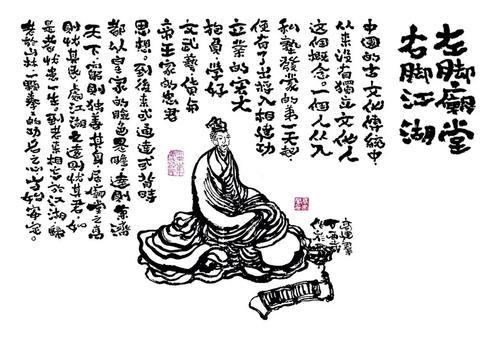 左脚廟堂
右脚江湖
中國的古文化傳統中，
从来没有獨立文化人
这個概念。一個人从入
私塾發蒙的第一天起，
便有了出將入相建功
立業的宏大
抱負。學好
文武藝貨与
帝王家的忠君
思想。到後来或通達或背時
都以皇家的臉色思瞻。達則兼濟
天下，窮則独善其身。居廟堂之高
則忧其民，處江湖之遠則忧其君。如
是者忧患一生，到老来相忘於江湖，歸
老於山林，一顆拳拳的功名之心方始寧定。